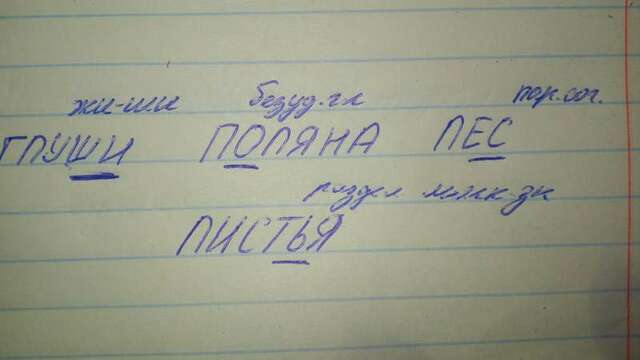 жи-ши безуд.гл пар.сог.
ГЛУШИ ПОЛЯНА ЛЕС
раздел мягк.зн
ЛИСТЬЯ